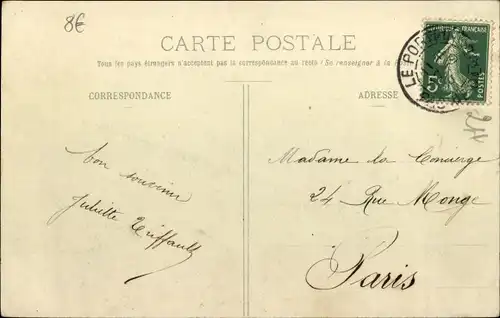 8€
CARTE POSTALE
Tous les pays étrangers n'acceptent pas la correspondance au recto (Se renseigner à la
CORRESPONDANCE
ADRESSE
RÉPUBLIQUE FRANÇAISE
5c
POSTES
LE PO
Bon souvenir
Juliette Triffault
Madame la Concierge
24 Rue Monge
Paris